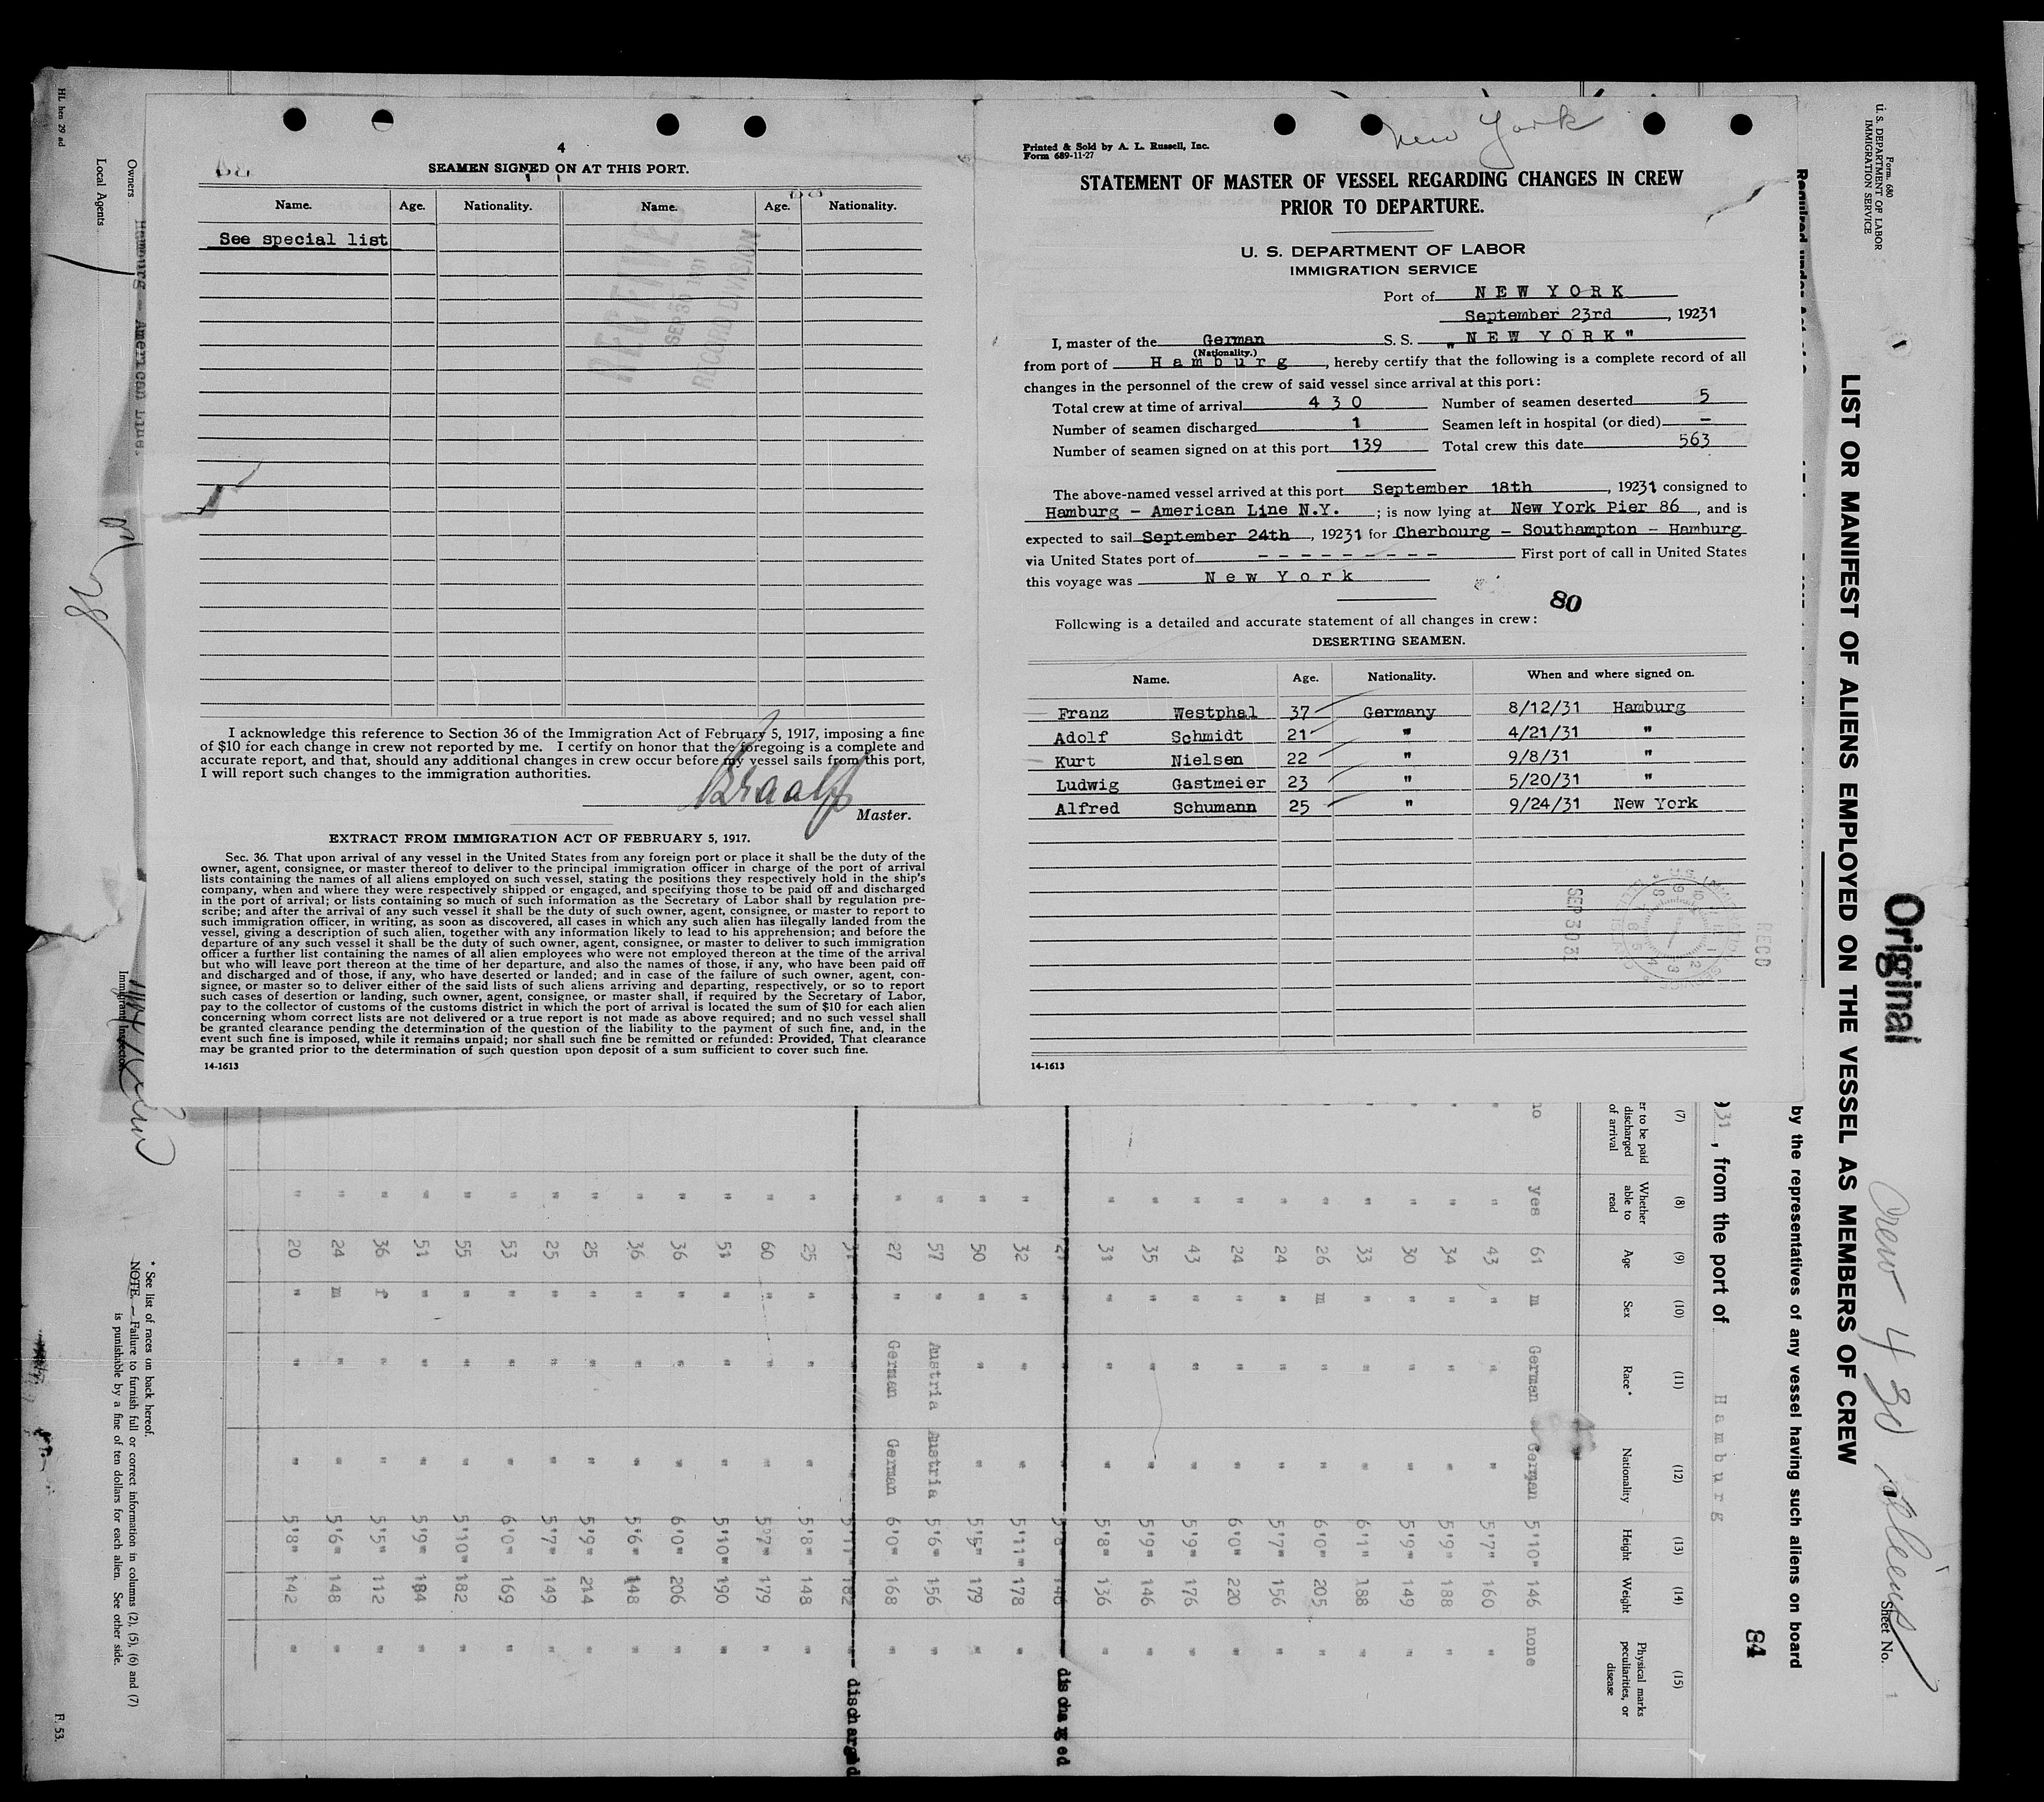 4
SEAMEN SIGNED ON AT THIS PORT.
Name. Age. Nationality. Name. Age. Nationality.
See special list
RECEIVED
SEP 30 1931
RECORD DIVISION
I acknowledge this reference to Section 36 of the Immigration Act of February 5, 1917, imposing a fine
of $10 for each change in crew not reported by me. I certify on honor that the foregoing is a complete and
accurate report, and that, should any additional changes in crew occur before my vessel sails from this port,
I will report such changes to the immigration authorities.
Master.
EXTRACT FROM IMMIGRATION ACT OF FEBRUARY 5, 1917.
Sec. 36. That upon arrival of any vessel in the United States from any foreign port or place it shall be the duty of the
owner, agent, consignee, or master thereof to deliver to the principal immigration officer in charge of the port of arrival
lists containing the names of all aliens employed on such vessel, stating the positions they respectively hold in the ship's
company, when and where they were respectively shipped or engaged, and specifying those to be paid off and discharged
in the port of arrival; or lists containing so much of such information as the Secretary of Labor shall by regulation pre-
scribe; and after the arrival of any such vessel it shall be the duty of such owner, agent, consignee, or master to report to
such immigration officer, in writing, as soon as discovered, all cases in which any such alien has illegally landed from the
vessel, giving a description of such alien, together with any information likely to lead to his apprehension; and before the
departure of any such vessel it shall be the duty of such owner, agent, consignee, or master to deliver to such immigration
officer a further list containing the names of all alien employees who were not employed thereon at the time of the arrival
but who will leave port thereon at the time of her departure, and also the names of those, if any, who have been paid off
and discharged and of those, if any, who have deserted or landed; and in case of the failure of such owner, agent, con-
signee, or master so to deliver either of the said lists of such aliens arriving and departing, respectively, or so to report
such cases of desertion or landing, such owner, agent, consignee, or master shall, if required by the Secretary of Labor,
pay to the collector of customs of the customs district in which the port of arrival is located the sum of $10 for each alien
concerning whom correct lists are not delivered or a true report is not made as above required; and no such vessel shall
be granted clearance pending the determination of the question of the liability to the payment of such fine, and, in the
event such fine is imposed, while it remains unpaid; nor shall such fine be remitted or refunded: Provided, That clearance
may be granted prior to the determination of such question upon deposit of a sum sufficient to cover such fine.
14-1613
New York
Printed & Sold by A. L. Russell, Inc.
Form 689-11-27
STATEMENT OF MASTER OF VESSEL REGARDING CHANGES IN CREW
PRIOR TO DEPARTURE.
U. S. DEPARTMENT OF LABOR
IMMIGRATION SERVICE
Port of NEW YORK
September 23rd, 19231
I, master of the German S. S. „NEW YORK"
(Nationality.)
from port of Hamburg, hereby certify that the following is a complete record of all
changes in the personnel of the crew of said vessel since arrival at this port:
Total crew at time of arrival 430 Number of seamen deserted 5
Number of seamen discharged 1 Seamen left in hospital (or died) -
Number of seamen signed on at this port 139 Total crew this date 563
The above-named vessel arrived at this port September 18th, 19231 consigned to
Hamburg - American Line N.Y. ; is now lying at New York Pier 86, and is
expected to sail September 24th, 19231 for Cherbourg - Southampton - Hamburg
via United States port of - - - - - - - - - First port of call in United States
this voyage was New York
80
Following is a detailed and accurate statement of all changes in crew:
DESERTING SEAMEN.
Name. Age. Nationality. When and where signed on.
Franz Westphal 37 Germany 8/12/31 Hamburg
Adolf Schmidt 21 " 4/21/31 "
Kurt Nielsen 22 " 9/8/31 "
Ludwig Gastmeier 23 " 5/20/31 "
Alfred Schumann 25 " 9/24/31 New York
SEP 30 31
RECD
14-1613
Form. 680
U. S. DEPARTMENT OF LABOR
IMMIGRATION SERVICE
Original
Crew 430 Aliens
Sheet No. 1
LIST OR MANIFEST OF ALIENS EMPLOYED ON THE VESSEL AS MEMBERS OF CREW
by the representatives of any vessel having such aliens on board
84
31, from the port of Hamburg
(7) (8) (9) (10) (11) (12) (13) (14) (15)
er to be paid discharged of arrival Whether able to read Age Sex Race* Nationality Height Weight Physical marks peculiarities, or disease
no yes 61 m German German 5'10" 146 none
" " 43 " " " 5'7" 160 "
" 34 " " " 5'9" 188 "
" 30 " " " 5'9" 149 "
" 33 " " " 6'1" 188 "
" 26 m " " 6'0" 205 "
" 24 " " " 5'7" 156 "
" 24 " " " 6'0" 220 "
" 43 " " " 5'9" 176 "
" 35 " " " 5'9" 146 "
" 31 " " " 5'8" 136 "
discharged
" 32 " " " 5'11" 178 "
" 50 " " " 5'5" 179 "
" 57 " Austria Austria 5'6" 156 "
" 27 " German German 6'0" 168 "
31 5'11" 182 discharged
" 25 " " " 5'8" 148 "
" 60 " " " 5'7" 179 "
" 51 " " " 5'10" 190 "
" 36 " " " 6'0" 206 "
" 36 " " " 5'6" 148 "
" 25 " " " 5'9" 214 "
" 25 " " " 5'7" 149 "
" 53 " " " 6'0" 169 "
" 55 " " " 5'10" 182 "
" 51 " " " 5'9" 184 "
" 36 f " " 5'5" 112 "
" 24 m " " 5'6" 148 "
" 20 " " " 5'8" 142 "
* See list of races on back hereof.
NOTE.—Failure to furnish full or correct information in columns (2), (5), (6) and (7)
is punishable by a fine of ten dollars for each alien. See other side.
Immigrant Inspector.
Owners Hamburg - American Line.
Local Agents
HL hen 29 ad
F. 53.